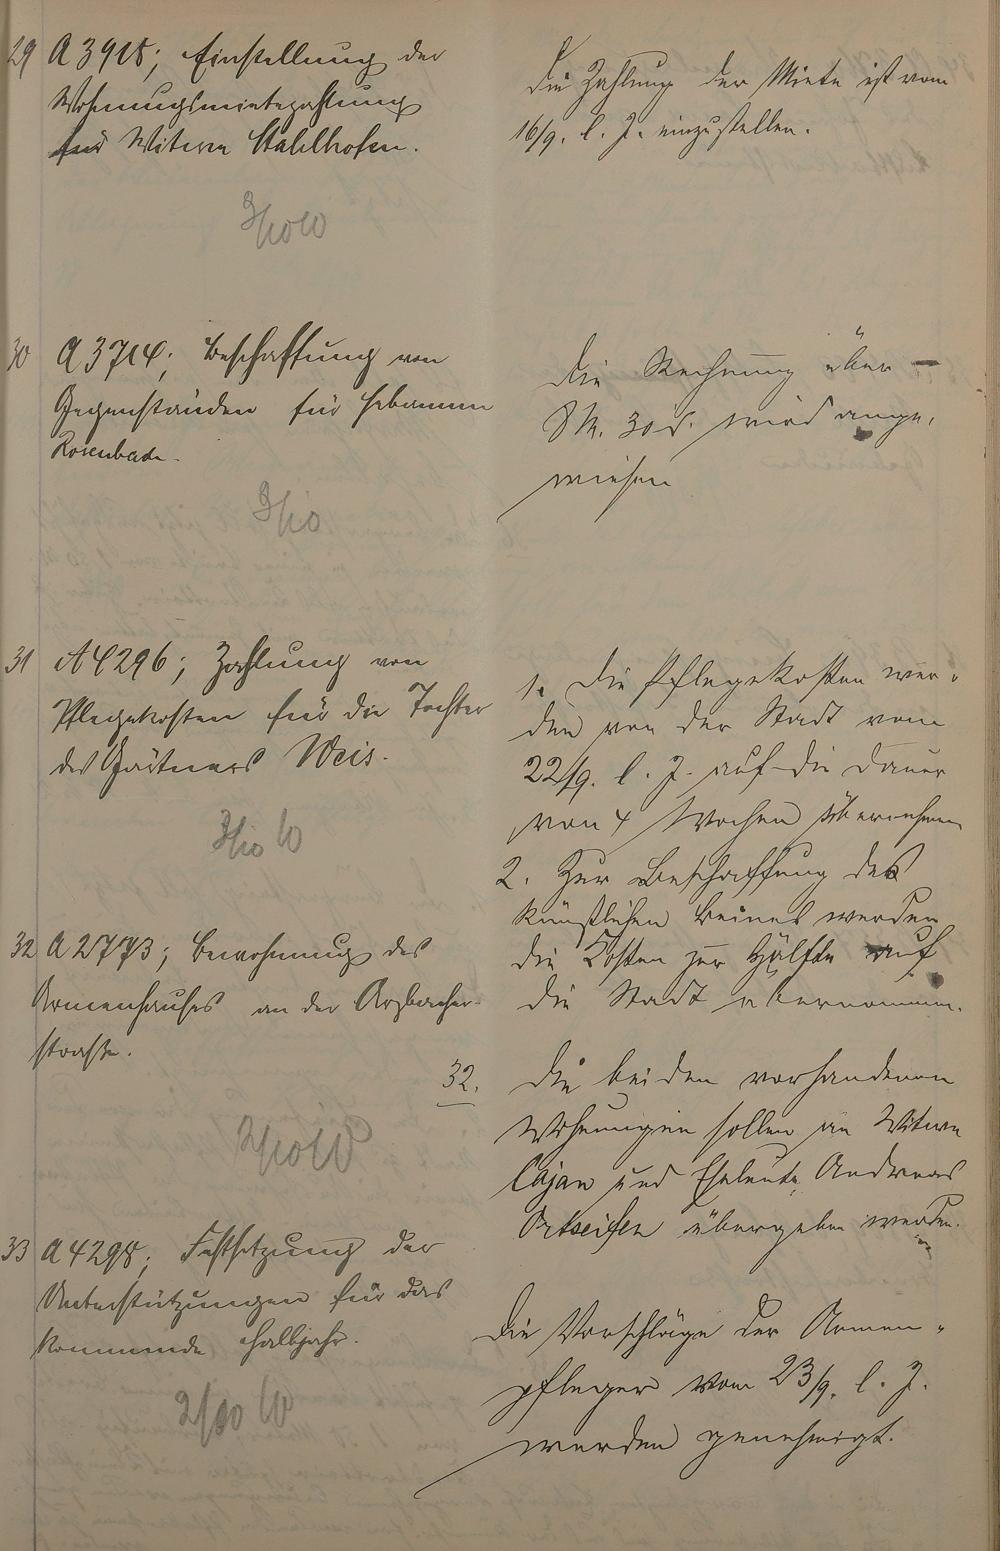 29 A 3918; Einstellung der
Wohnungsmietezahlung
für Witwe Stahlhofen.
3/10
Die Zahlung der Miete ist vom
16/9. l. J. einzustellen.
30 A 3714; Beschaffung von
Gegenständen für Hebamme
Rosenbach.
3/10
Die Rechnung über
M. 30 wird ange-
wiesen
31 A 4296; Zahlung von
Pflegekosten für die Tochter
des Gärtners Weis.
3/10
1. Die Pflegekosten wer-
den von der Stadt vom
22/9. l. J. auf die Dauer
von 4 Wochen übernommen
2. Zur Beschaffung des
künstlichen Beines werden
die Kosten zur Hälfte auf
die Stadt übernommen.
32 A 2773; Bewohnung des
Armenhauses an der Arzbacher-
straße.
2/10
32. Die beiden vorhandenen
Wohnungen sollen an Witwe
Cajan und Eheleute Andreas
Ortseifen übergeben werden.
33 A 4298; Festsetzung der
Unterstützungen für das
kommende Halbjahr.
2/10
Die Vorschläge der Armen-
pfleger vom 23/9. l. J.
werden genehmigt.